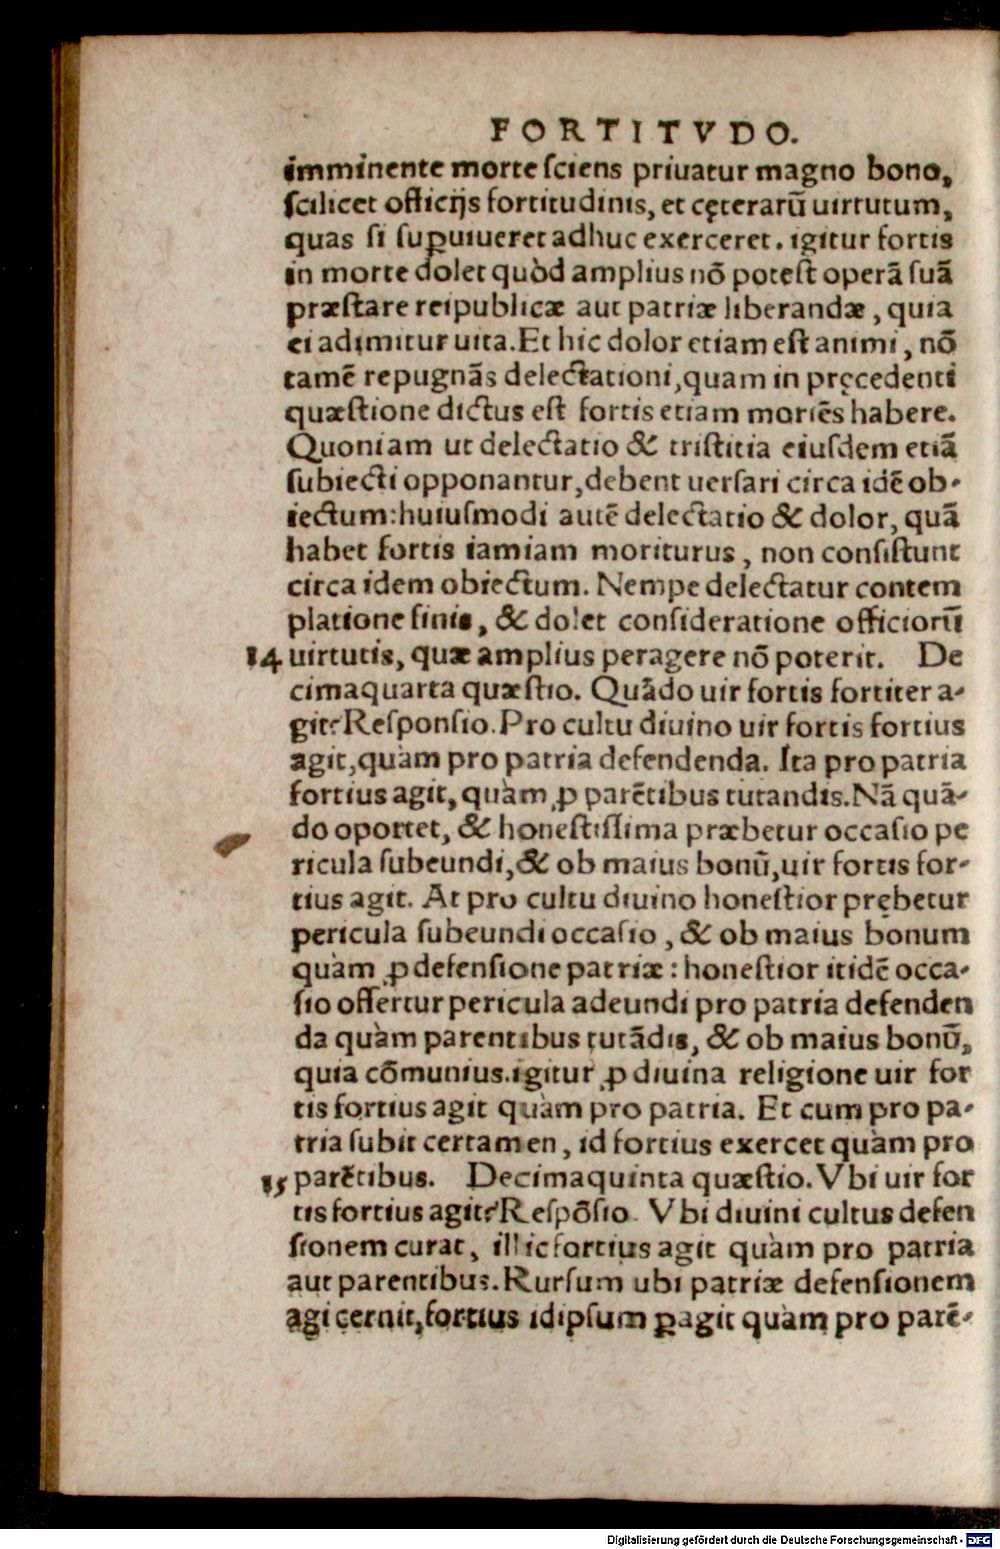 FORTITVDO.
imminente morte ſciens priuatur magno bono,
ſcilicet officijs fortitudinis, et cęterarū uirtutum,
quas ſi ſuꝑuiueret adhuc exerceret. igitur fortis
in morte dolet quòd amplius nō poteſt operā ſuā
præſtare reipublicæ aut patriæ liberandæ, quia
ei adimitur uita. Et hic dolor etiam eſt animi, nō
tamē repugnās delectationi, quam in pręcedenti
quæſtione dictus eſt fortis etiam moriēs habere.
Quoniam ut delectatio & triſtitia eiuſdem etiā
ſubiecti opponantur, debent uerſari circa idē ob-
iectum: huiuſmodi autē delectatio & dolor, quā
habet fortis iamiam moriturus, non conſiſtunt
circa idem obiectum. Nempe delectatur contem
platione finis, & dolet conſideratione officiorū
14 uirtutis, quæ amplius peragere nō poterit. De
cimaquarta quæſtio. Quādo uir fortis fortiter a-
git? Reſponſio. Pro cultu diuino uir fortis fortius
agit, quàm pro patria defendenda. Ita pro patria
fortius agit, quàm ꝓ parētibus tutandis. Nā quā-
do oportet, & honeſtiſſima præbetur occaſio pe
ricula ſubeundi, & ob maius bonū, uir fortis for-
tius agit. At pro cultu diuino honeſtior prębetur
pericula ſubeundi occaſio, & ob maius bonum
quàm ꝓ defenſione patriæ: honeſtior itidē occa-
ſio offertur pericula adeundi pro patria defenden
da quàm parentibus tutādis, & ob maius bonū,
quia cōmunius. igitur ꝓ diuina religione uir for
tis fortius agit quàm pro patria. Et cum pro pa-
tria ſubit certamen, id fortius exercet quàm pro
15 parētibus. Decimaquinta quæſtio. Vbi uir for
tis fortius agit? Reſpōſio. Vbi diuini cultus defen
ſionem curat, illic fortius agit quàm pro patria
aut parentibus. Rurſum ubi patriæ defenſionem
agi cernit, fortius idipſum ꝑagit quàm pro parē-
Digitalisierung gefördert durch die Deutsche Forschungsgemeinschaft - DFG